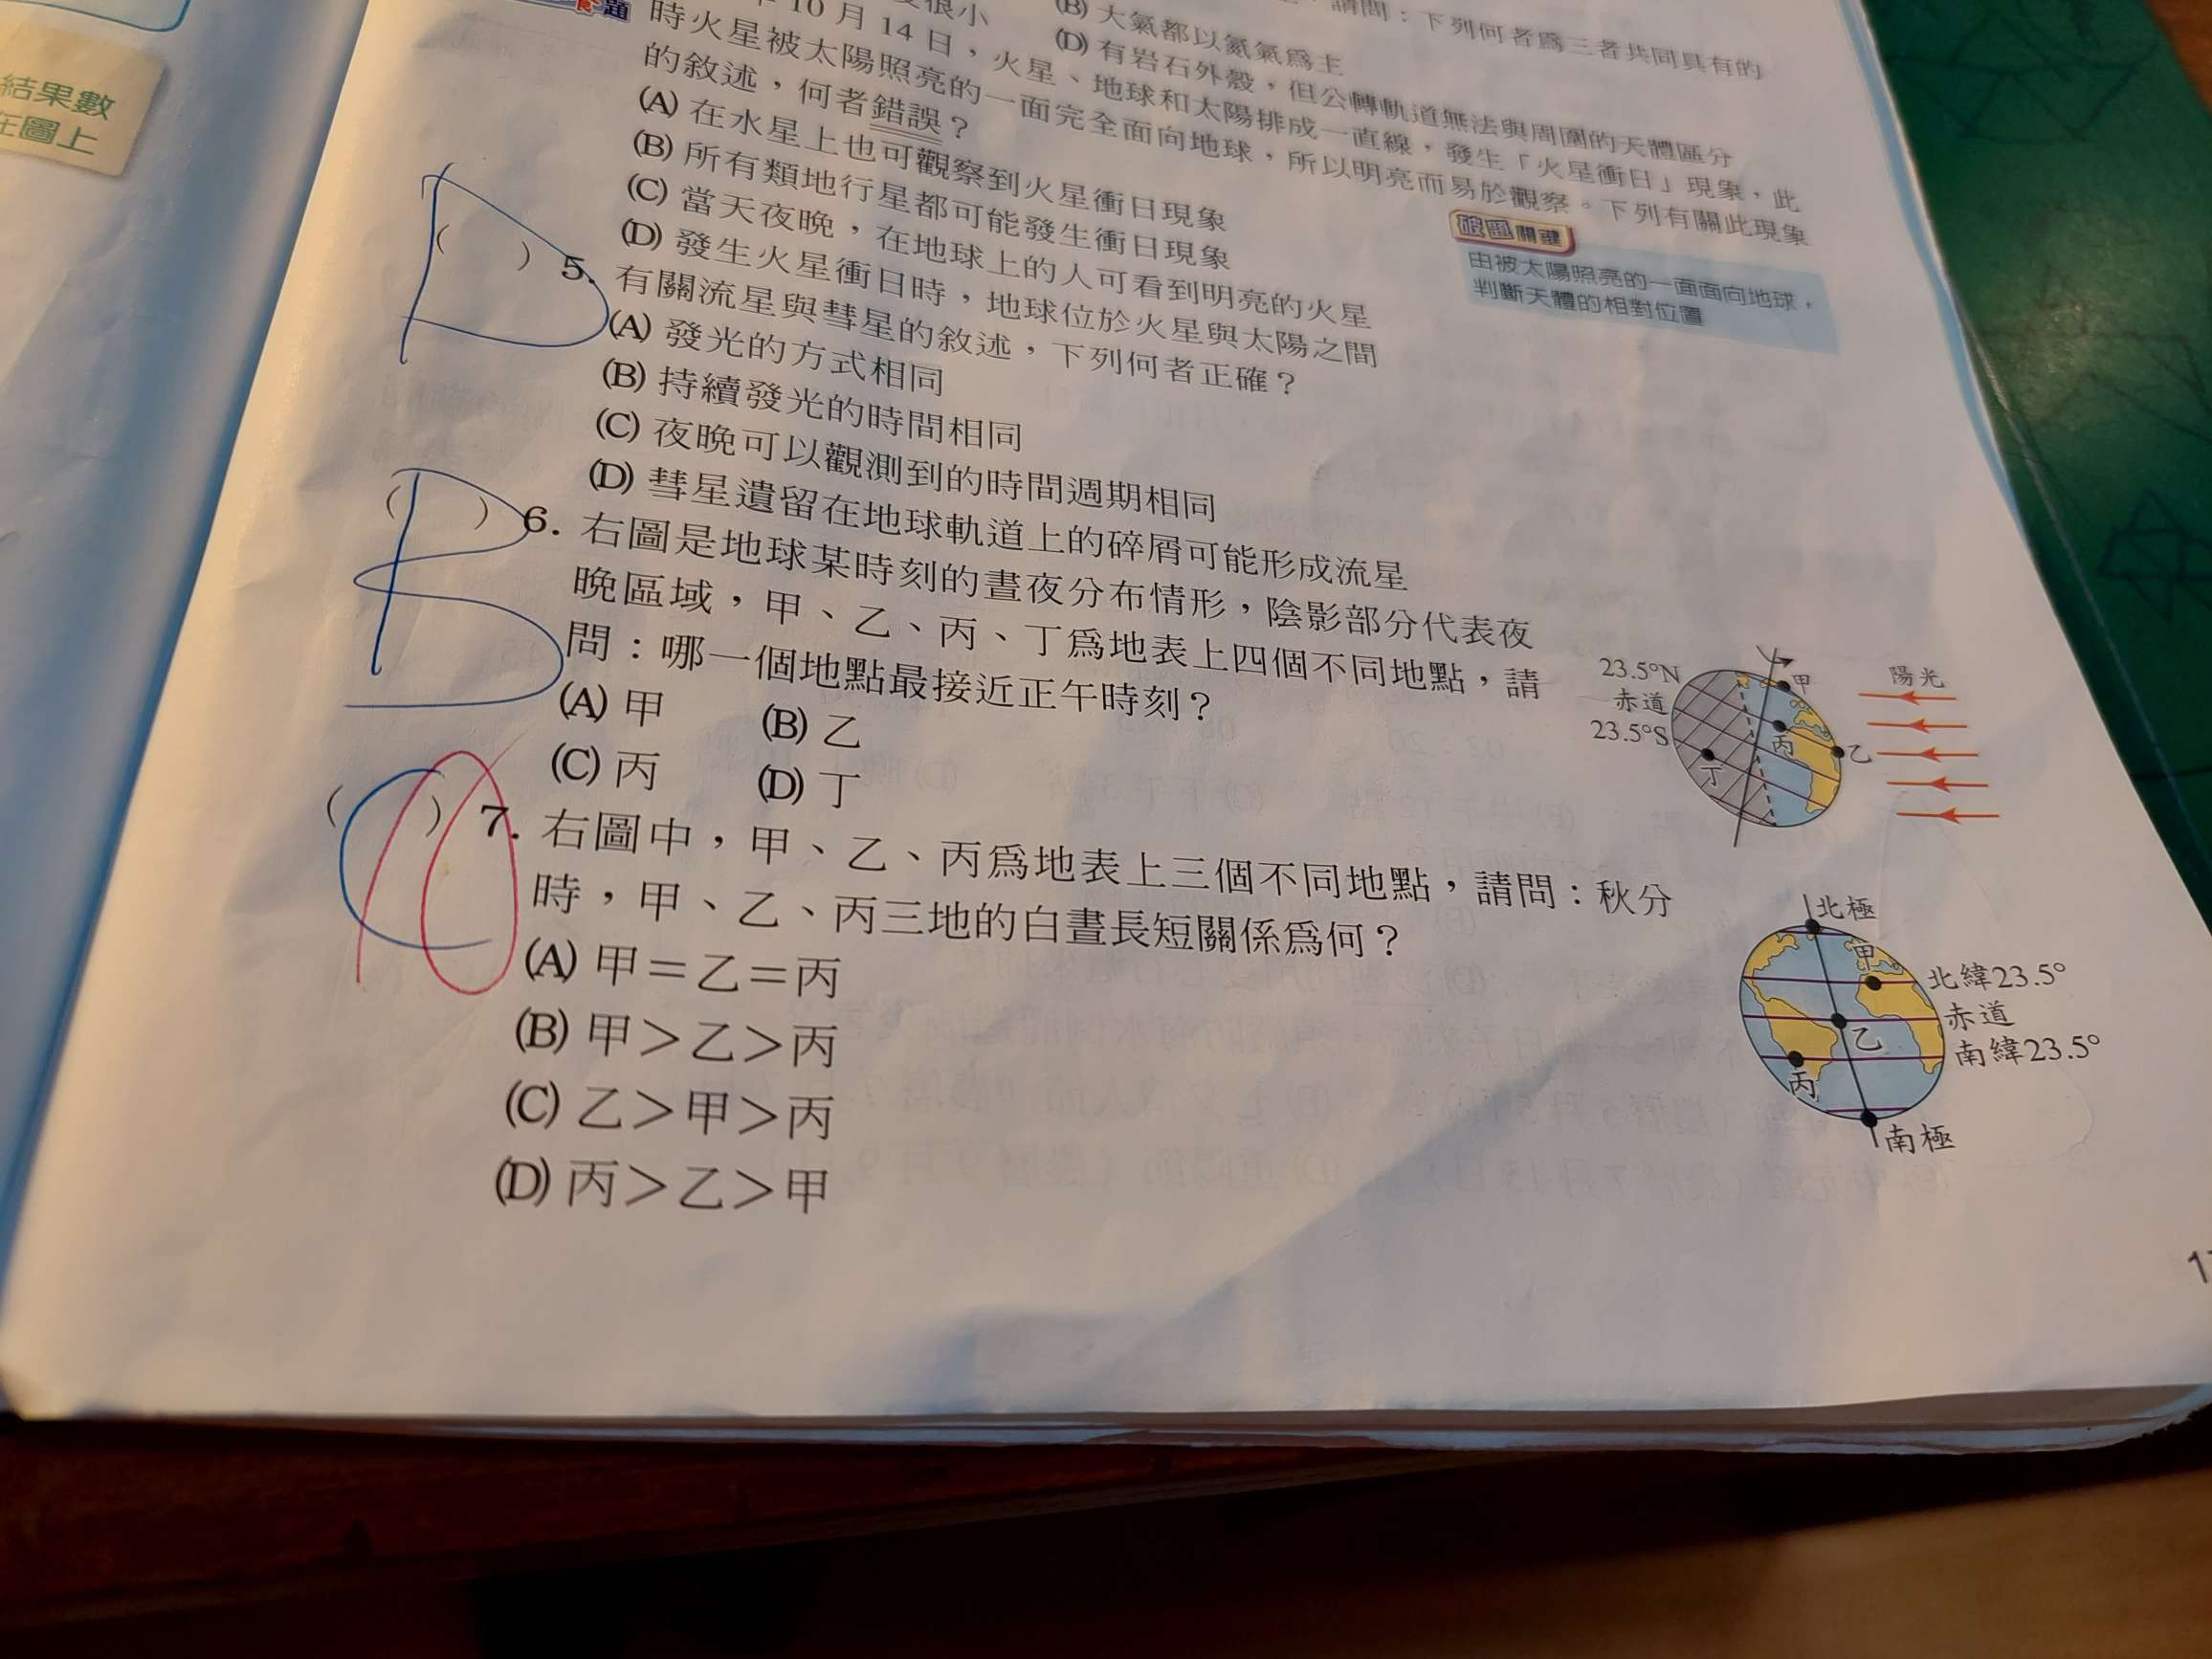 結果數
在圖上
請問：下列何者爲三者共同具有的
很小
(B) 大氣都以氮氣爲主
(D) 有岩石外殼，但公轉軌道無法與周圍的天體區分
題
10 月 14 日，火星、地球和太陽排成一直線，發生「火星衝日」現象，此
時火星被太陽照亮的一面完全面向地球，所以明亮而易於觀察。下列有關此現象
的敘述，何者錯誤？
(A) 在水星上也可觀察到火星衝日現象
(B) 所有類地行星都可能發生衝日現象
(C) 當天夜晚，在地球上的人可看到明亮的火星
(D) 發生火星衝日時，地球位於火星與太陽之間
破題關鍵
由被太陽照亮的一面面向地球，
判斷天體的相對位置
D
( ) 5. 有關流星與彗星的敘述，下列何者正確？
(A) 發光的方式相同
(B) 持續發光的時間相同
(C) 夜晚可以觀測到的時間週期相同
(D) 彗星遺留在地球軌道上的碎屑可能形成流星
B
( ) 6. 右圖是地球某時刻的晝夜分布情形，陰影部分代表夜
晚區域，甲、乙、丙、丁爲地表上四個不同地點，請
問：哪一個地點最接近正午時刻？
(A) 甲 (B) 乙
(C) 丙 (D) 丁
23.5°N
赤道
23.5°S
甲
乙
丙
丁
陽光
( ) 7. 右圖中，甲、乙、丙爲地表上三個不同地點，請問：秋分
時，甲、乙、丙三地的白晝長短關係爲何？
(A) 甲＝乙＝丙
(B) 甲＞乙＞丙
(C) 乙＞甲＞丙
(D) 丙＞乙＞甲
北極
甲
北緯23.5°
赤道
乙
南緯23.5°
丙
南極